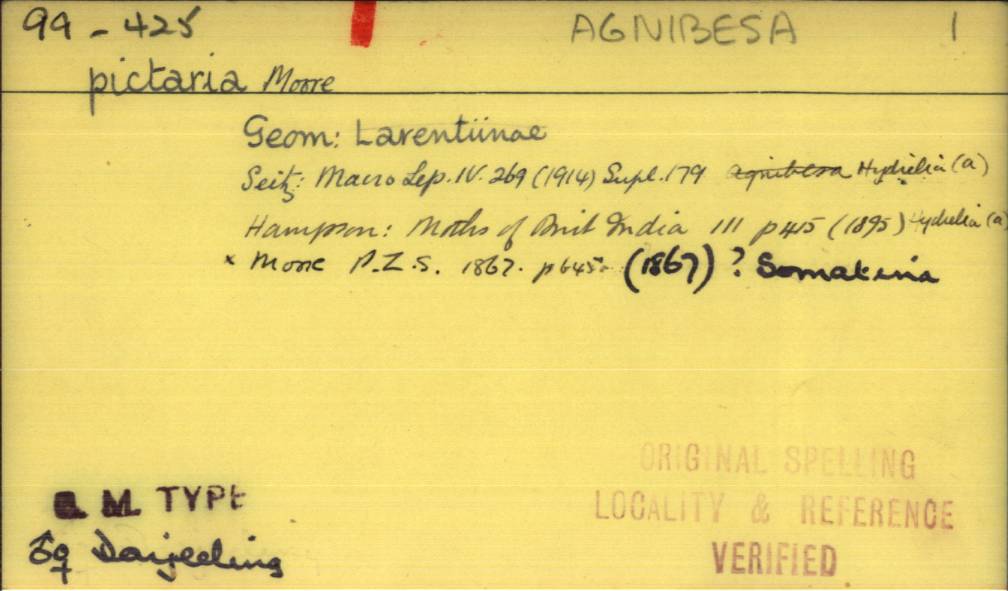 99 - 425 AGNIBESA 1
pictaria Moore
Geom: Larentiinae
Seitz: Macro Lep. IV. 269 (1914) Supl. 179 agnibesa Hydrelia (a)
Hampson: Moths of Brit India III p 415 (1895) Hydrelia (a)
x Moore P.Z.S. 1867. p 645. (1867) ? Somatina
ORIGINAL SPELLING
LOCALITY & REFERENCE
VERIFIED
B. M. TYPE
♂♀ Darjeeling